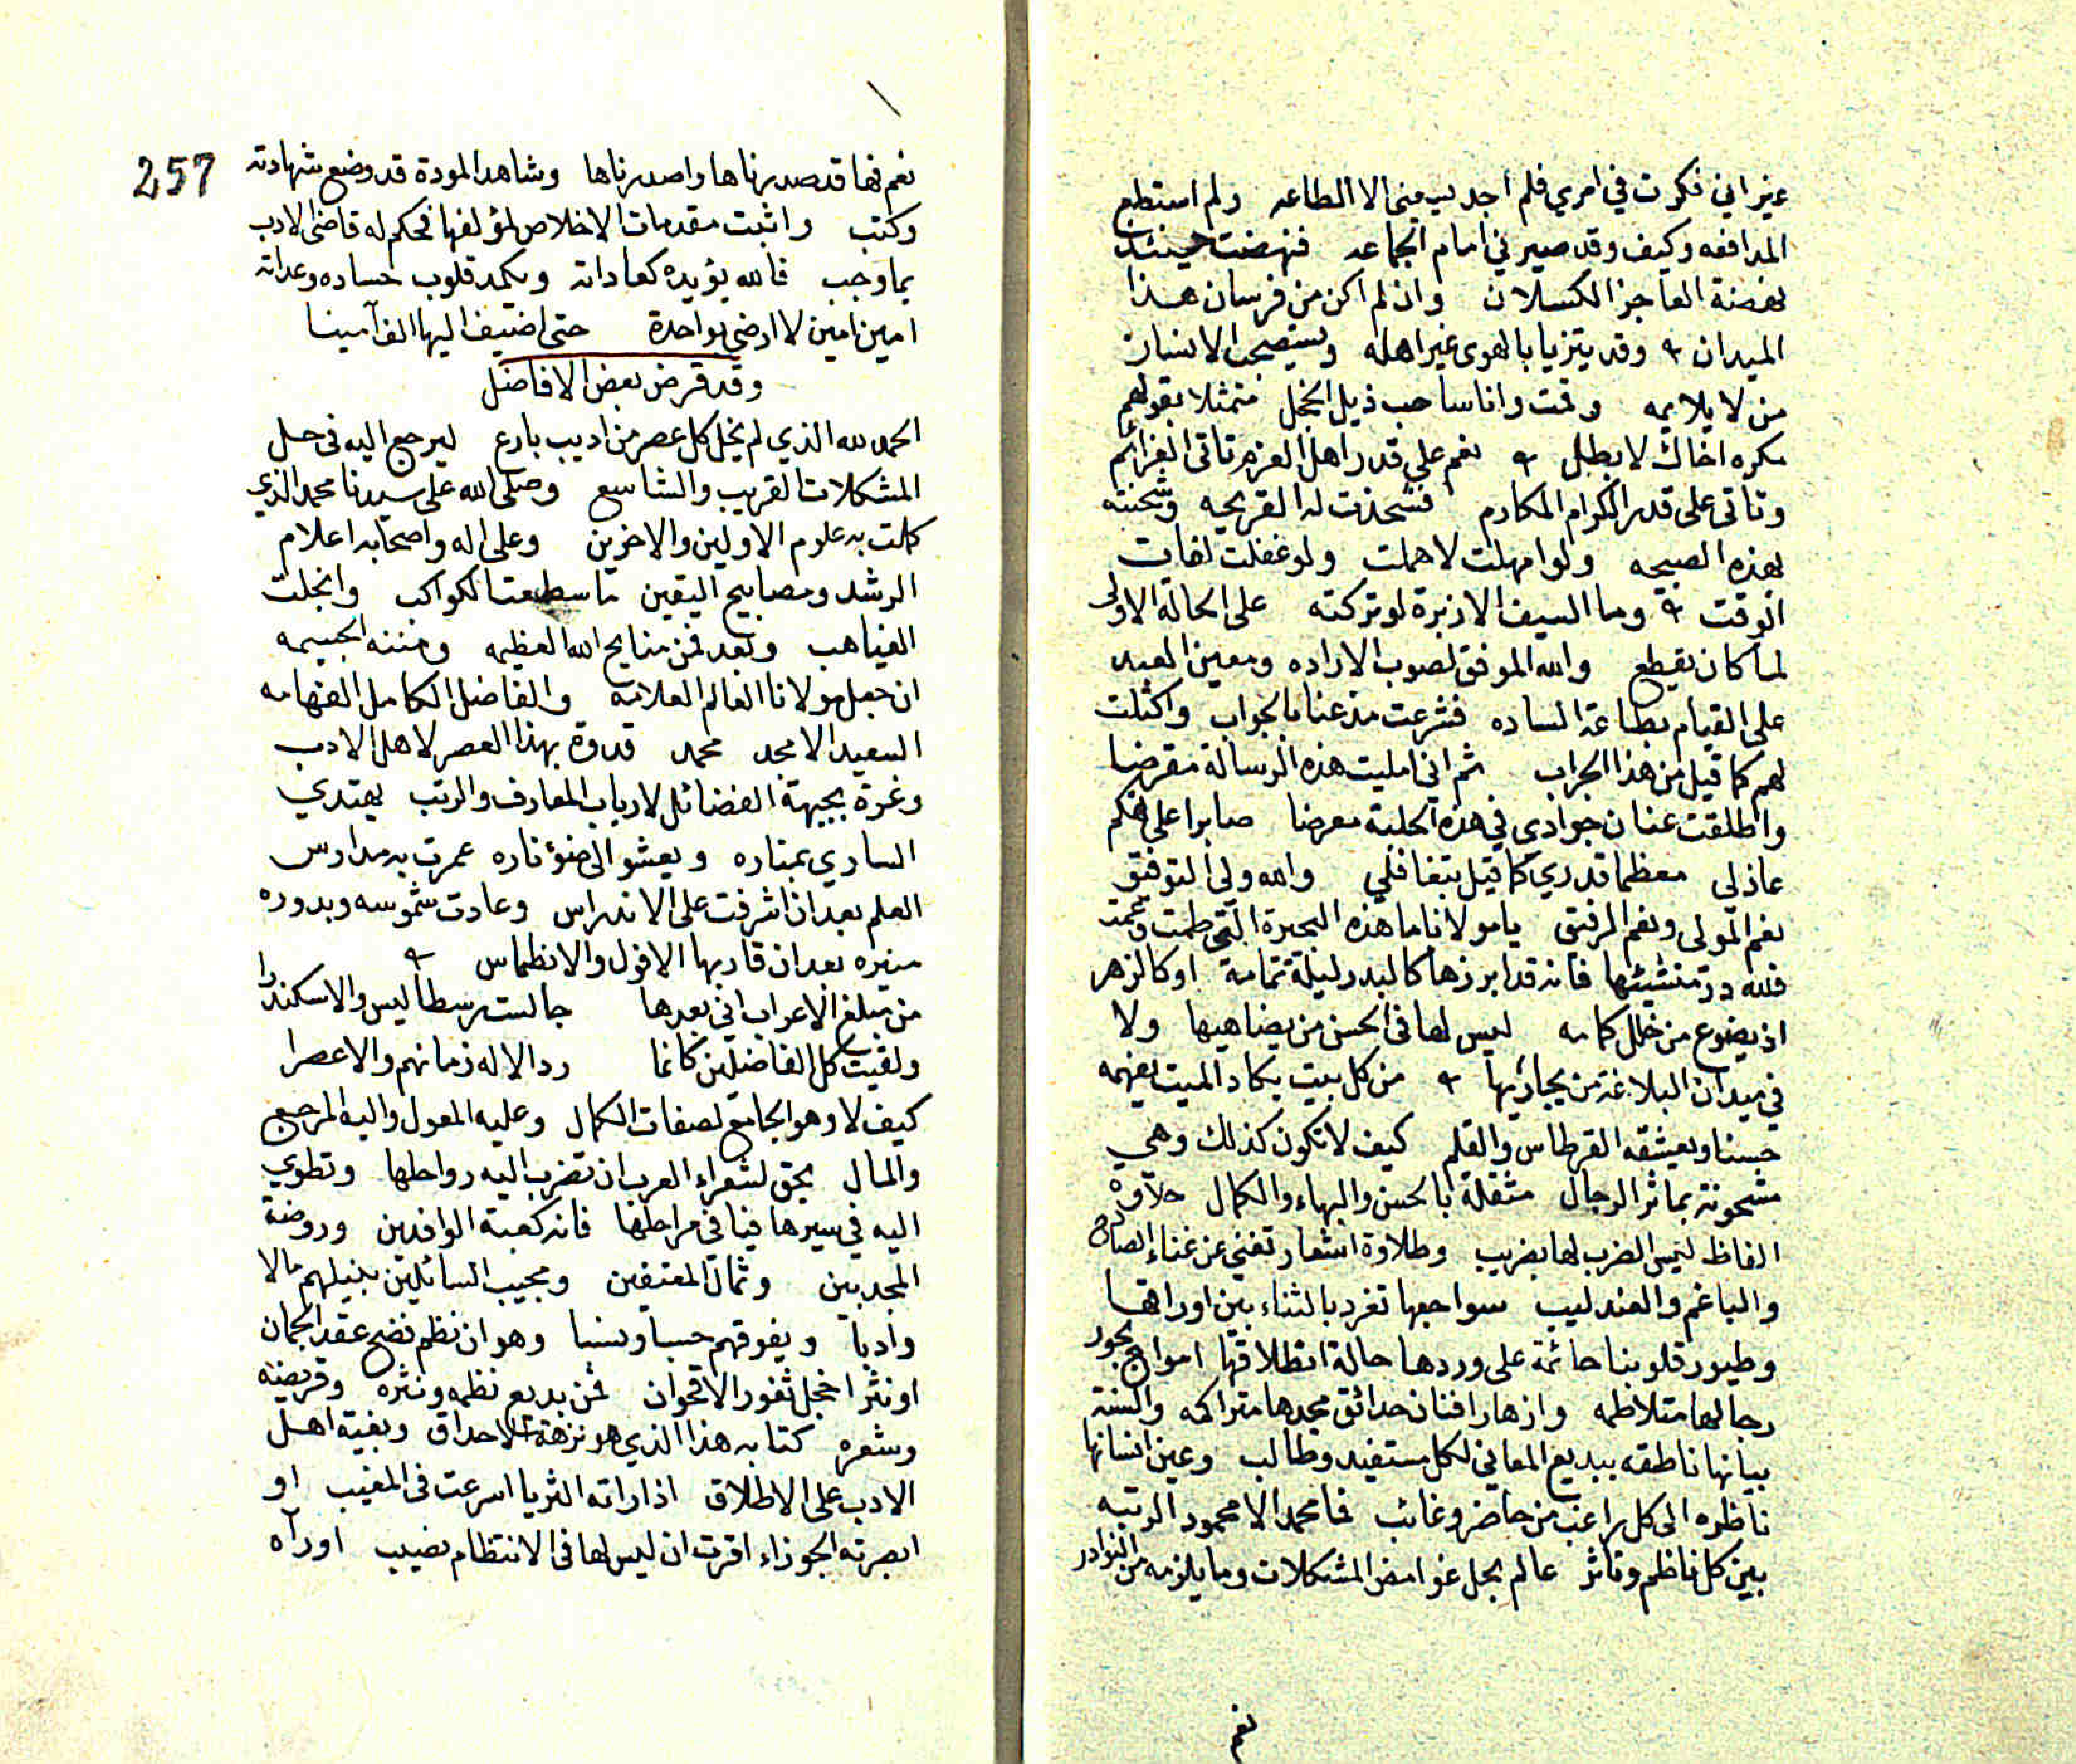 غيراني فكرت في امري فلم اجد لي مني الا الطاعه ولم استطع
المدافعه وكيف وقد صيرني امام الجماعه فنهضت حينئذ
نهضة العاجز الكسلان وان لم اكن من فرسان هذا
الميدان وقد يتزيا بالهوى غير اهله ويستصحب الانسان
من لا يلايمه وقمت وانا ساحب ذيل الخجل متمثلا بقولهم
مكره اخاك لا بطل نعم على قدر اهل العزم تاتي العزائم
وتاتي على قدر الكرام المكارم فشحذت له القريحه
لهذه الصبيحه ولو امهلت لاهملت ولو غفلت لفات
الوقت وما السيف الا زبرة لو تركته على الحالة الاولى
لما كان يقطع والله الموفق لصوب الاراده ومعين العبيد
على القيام بطاعة الساده فشرعت مذعنا بالجواب واكتلت
لهم كما قيل من هذا الجراب ثم اني امليت هذه الرسالة مقرضا
واطلقت عنان جوادي في هذه الحلبة معرضا صابرا على
عاذلي معظما قدري كما قيل بتغافلي والله ولي التوفيق
نعم المولى ونعم الرفيق يا مولانا ما هذه البحيرة التي طمت وعمت
فلله در منشيئها فانه قد ابرزها كالبدر ليلة تمامه او كالزهر
اذ يضوع من خلل كمامه ليس لها في الحسن من يضاهيها ولا
في ميدان البلاغة من يجاريها من كل بيت يكاد الميت يفهمه
حسنا ويعشقه القرطاس والقلم كيف لا تكون كذلك وهي
مشحونة بماثر الرجال مثقلة بالحسن والبهاء والكمال حلاوة
الفاظ ليس الضرب لها بضريب وطلاوة اشعار تغني عن غناء الصادح
والباغم والعندليب سواجعها تغرد بالثناء بين اوراقها
وطيور قلوبنا حائمة على وردها حالة انطلاقها امواج بحور
رجالها متلاطمه وازهار افنان حدائق مجدها متراكمه والسنة
بيانها ناطقه ببديع المعاني لكل مستفيد وطالب وعين انسانها
ناظره الى كل راغب من حاضر وغائب فما محمد الا محمود الرتبه
بين كل ناظم وناثر عالم بحل غوامض المشكلات وما يلزمه من النوادر
نعم
257
نعم فها قد صدرناها واصدرناها وشاهد المودة قد وضع شهادته
وكتب واثبت مقدمات الاخلاص لمؤلفها فحكم له قاضي الادب
بما وجب فالله يؤيده كعاداته ويكمد قلوب حساده وعداته
امين امين لا ارضى بواحدة حتى اضيف اليها الف آمينا
وقد قرض بعض الافاضل
الحمد لله الذي لم يخل كل عصر من اديب بارع ليرجع اليه في حل
المشكلات القريب والشاسع وصلى الله على سيدنا محمد الذي
كملت به علوم الاولين والاخرين وعلى اله واصحابه اعلام
الرشد ومصابيح اليقين ما سطعت الكواكب وانجلت
الغياهب وبعد فمن منايح الله العظيمه ومننه الجسيمه
ان جعل مولانا العالم العلامه والفاضل الكامل الفهامه
السعيد الامجد محمد قدوة بهذا العصر لاهل الادب
وغرة بجبهة الفضائل لارباب المعارف والرتب يهتدي
الساري بمناره ويعشو الى ضوء ناره عمرت به مدارس
العلم بعد ان اشرفت على الاندراس وعادت شموسه وبدوره
منيره بعد ان قاربها الافول والانطماس
من مبلغ الاعراب اني بعدها جالست رسطاليس والاسكندرا
ولقيت كل الفاضلين كانما رد الاله زمانهم والاعصرا
كيف لا وهو الجامع لصفات الكمال وعليه المعول واليه المرجع
والمال يحق لشعراء العرب ان تضرب اليه رواحلها وتطوي
اليه في سيرها فيافي مراحلها فانه كعبة الوافدين وروضة
المجدبين وثمال المعتفين ومجيب السائلين بنيلهم مالا
وأدبا ويفوقهم حسبا ونسبا وهو ان نظم فضح عقد الجمان
او نثر اخجل ثغور الاقحوان فمن بديع نظمه ونثره وقريضه
وشعره كتابه هذا الذي هو نزهة الاحداق وبغية اهل
الادب على الاطلاق اذا راته الثريا اسرعت في المغيب او
ابصرته الجوزاء اقرت ان ليس لها في الانتظام نصيب او رآه